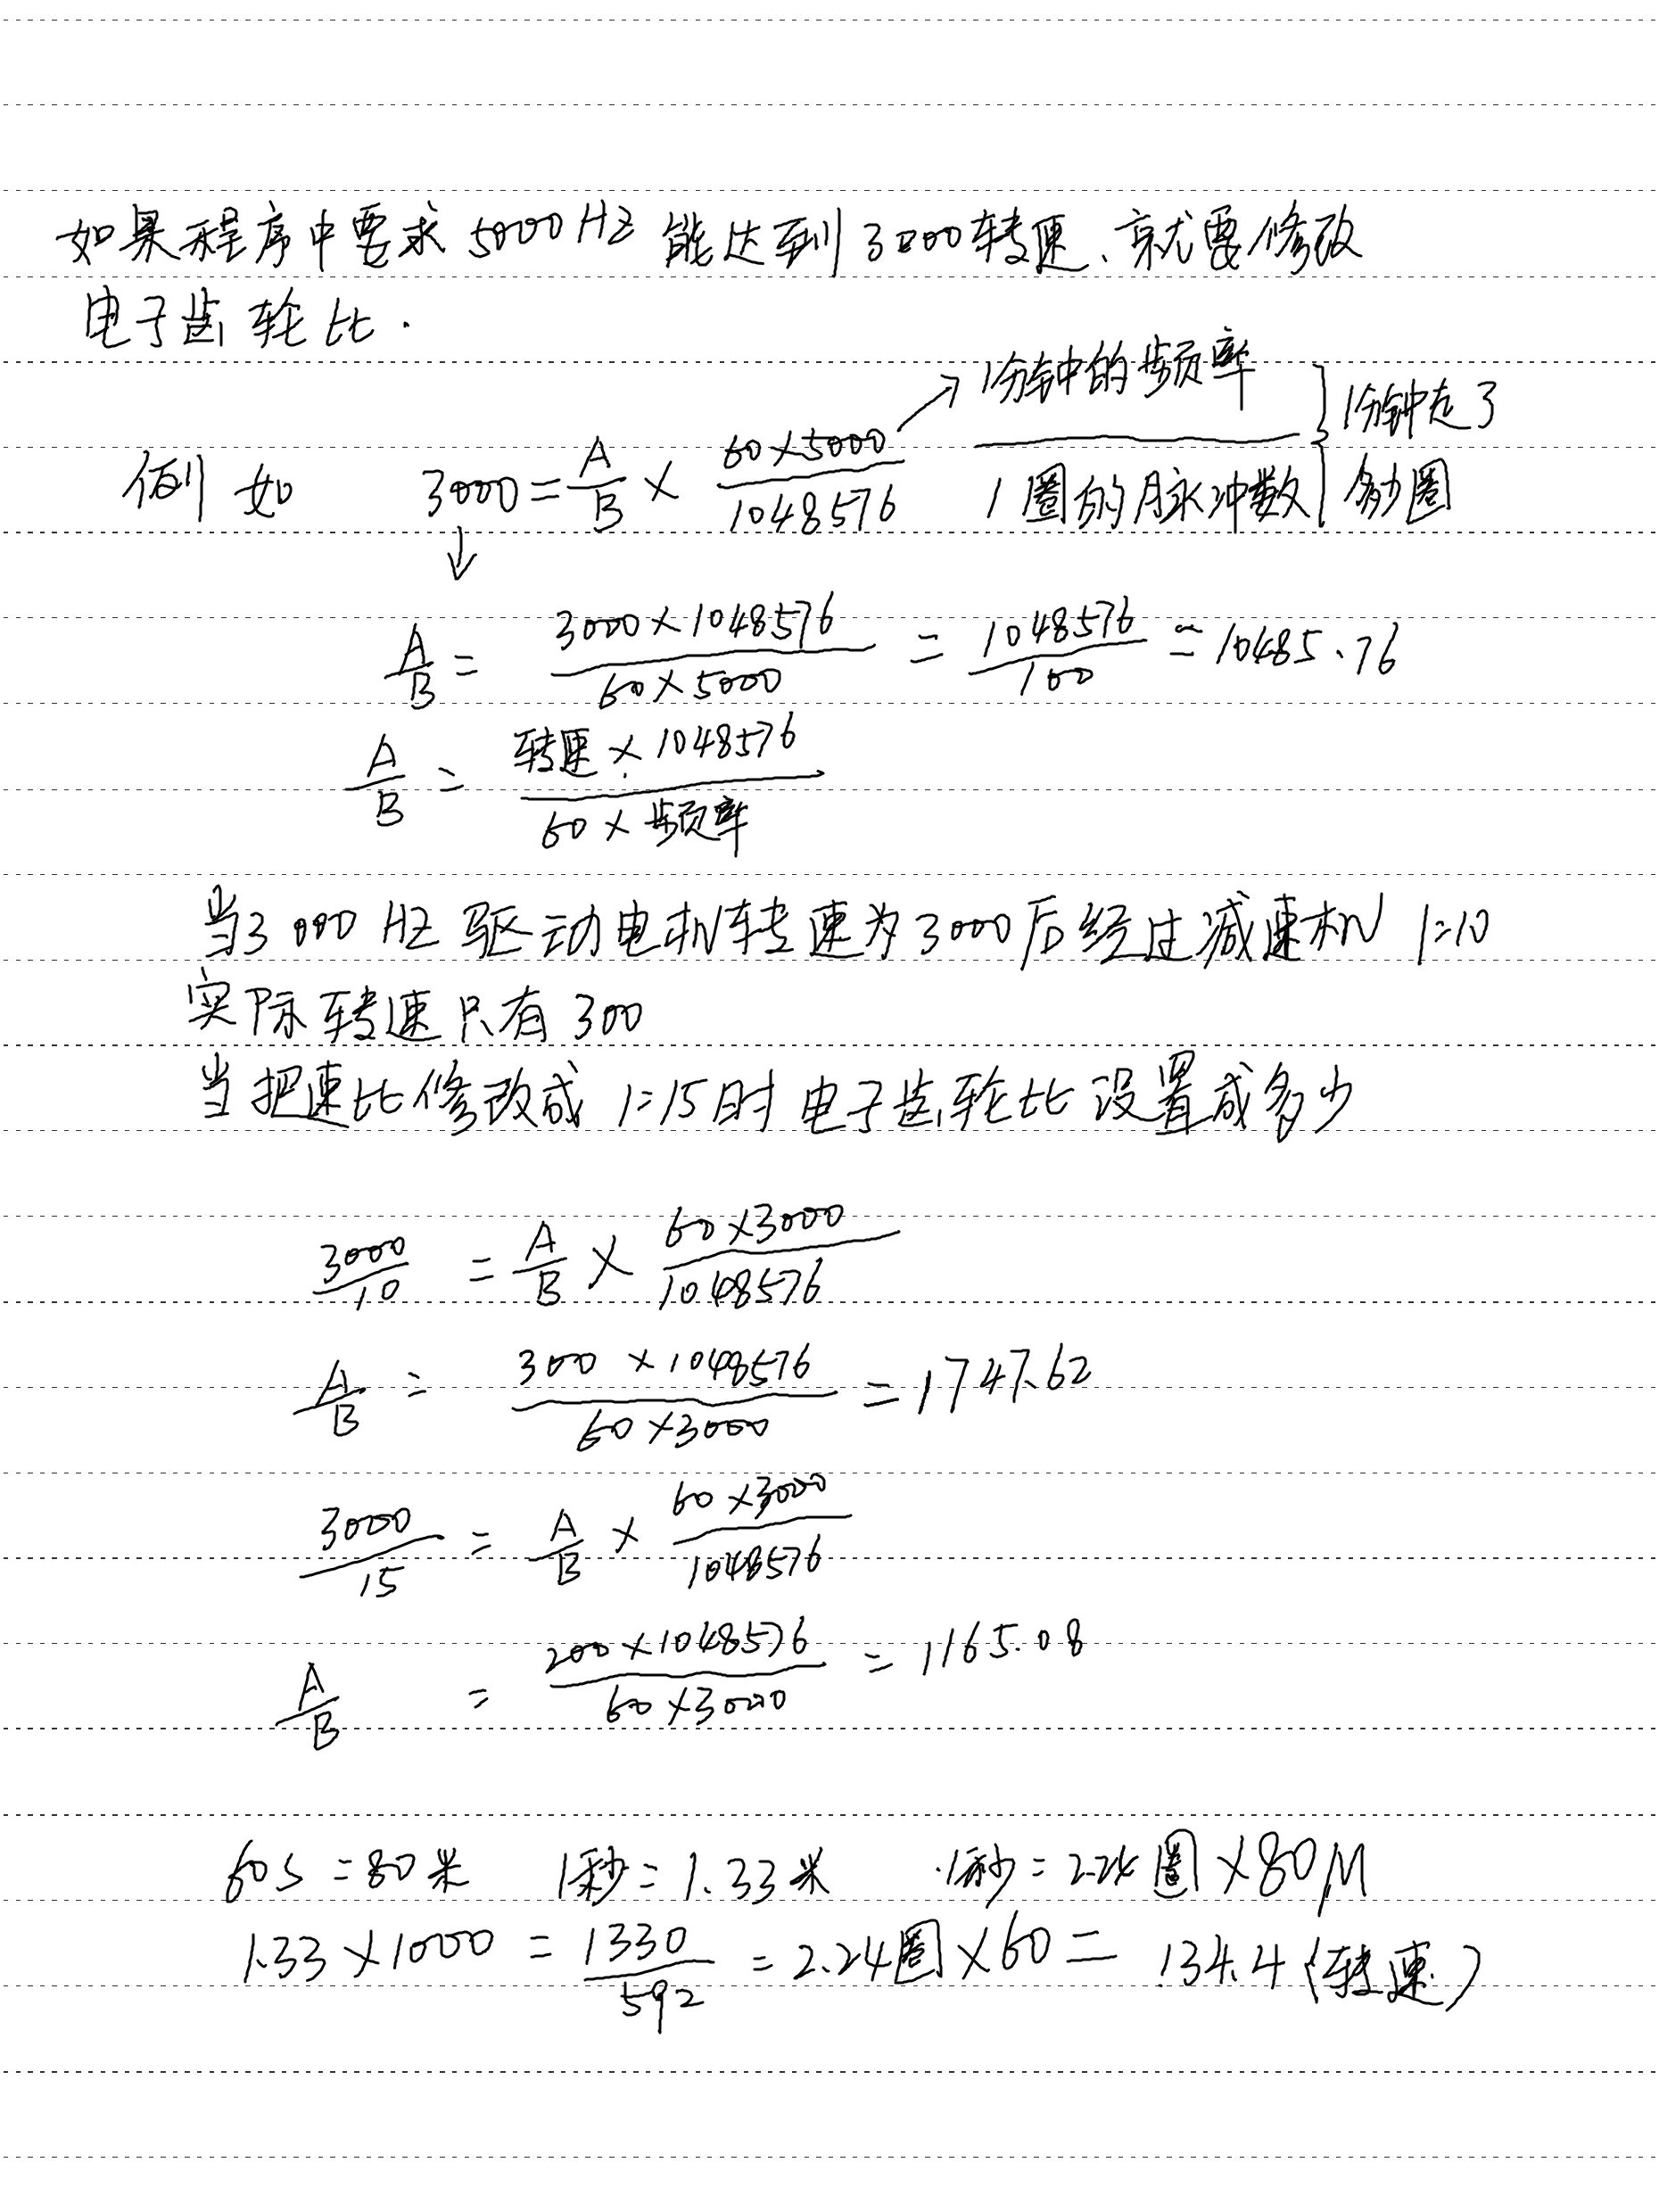 如果程序中要求 5000HZ 能达到3000转速、就要修改
电子齿轮比.
例如 3000 = A/B × (60×5000)/1048576 → 1分钟的频率/1圈的脉冲数 } 1分钟走了多少圈
↓
A/B = (3000×1048576)/(60×5000) = 1048576/100 = 10485.76
A/B = (转速×1048576)/(60×频率)
当3000HZ驱动电机转速为3000后经过减速机 1:10
实际转速只有300
当把速比修改成 1:15时 电子齿轮比设置成多少
3000/10 = A/B × (60×3000)/1048576
A/B = (300×1048576)/(60×3000) = 1747.62
3000/15 = A/B × (60×3000)/1048576
A/B = (200×1048576)/(60×3000) = 1165.08
60s=80米 1秒=1.33米 1秒=2.24圈×80M
1.33×1000 = 1330/592 = 2.24圈×60= 134.4(转速)